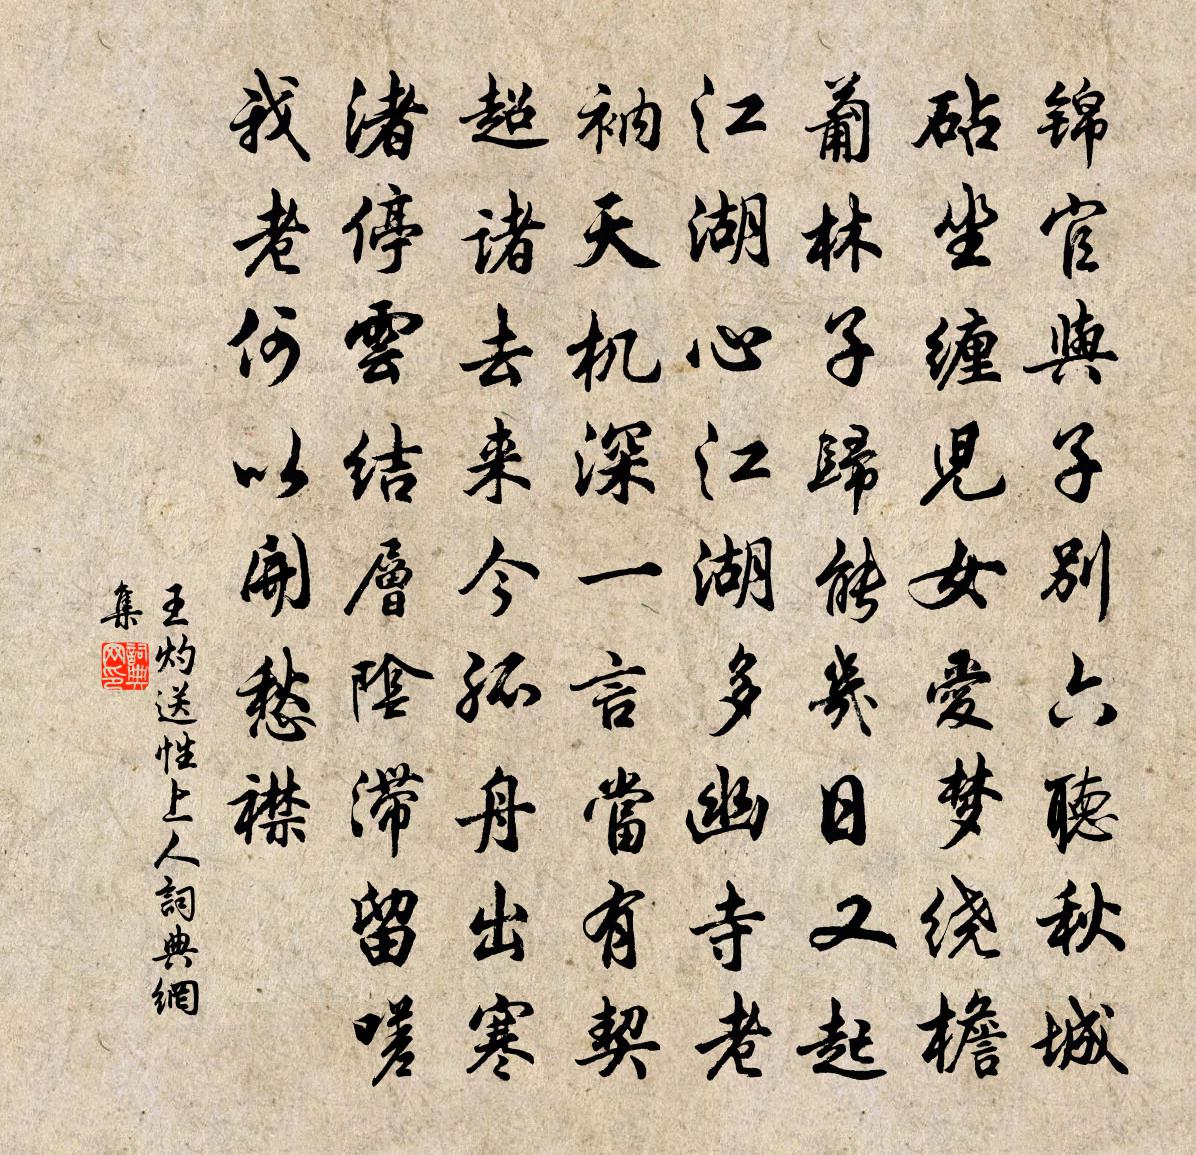 锦官與子别六聽秋城
砧坐缠児女愛梦绕檐
蔔林子歸能幾日又起
江湖心江湖多幽寺老
衲天机深一言當有契
超诸去来今孤舟出寒
渚停雲结層陰滞留嗟
我老何以開愁襟
王灼送性上人詞典網
集
詞典网印